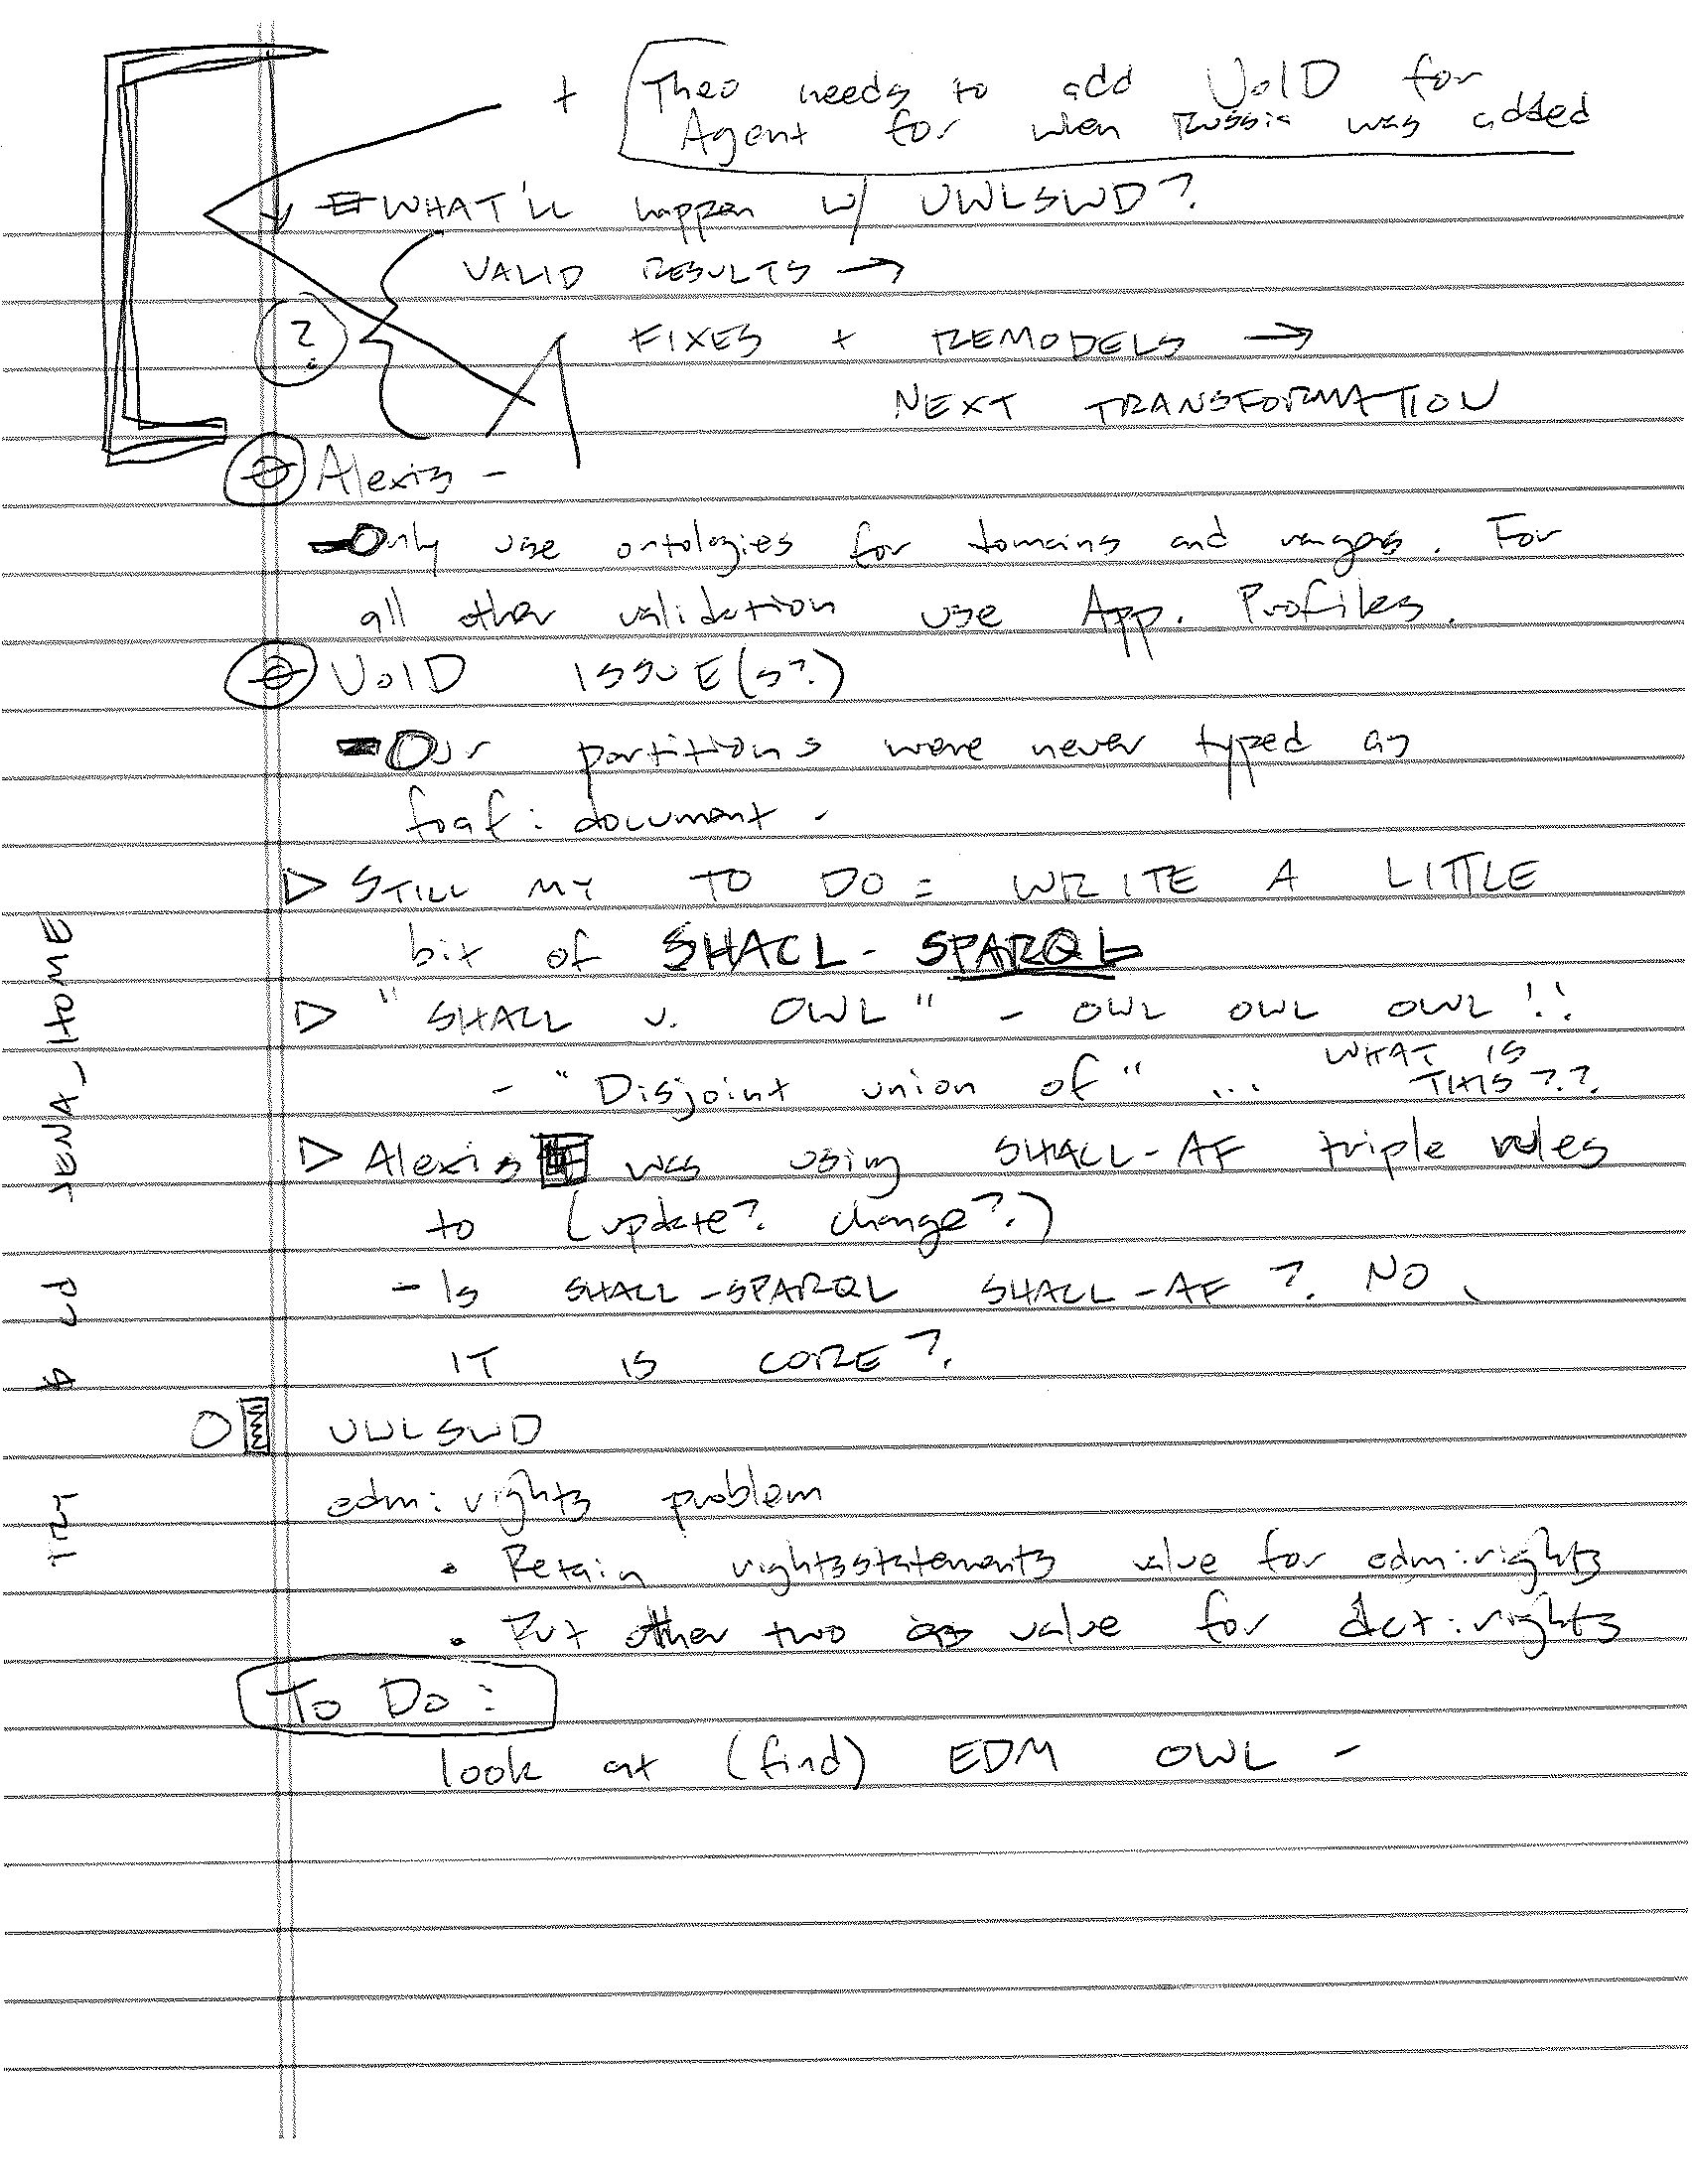 + Theo needs to add VoID for
Agent for when Russia was added
WHAT'LL happen w/ UWLSWD?
VALID RESULTS →
? FIXES + REMODELS →
NEXT TRANSFORMATION
Alexis -
- Only use ontologies for domains and ranges. For
all other validation use App. Profiles.
VoID ISSUE(S?)
- Our partitions were never typed as
foaf: document.
▷ STILL MY TO DO: WRITE A LITTLE
bit of SHACL-SPARQL
▷ "SHACL v. OWL" - OWL OWL OWL!!
- "Disjoint union of" ... WHAT IS
THIS??
▷ Alexis was using SHACL-AF triple rules
to (update? change?)
- Is SHACL-SPARQL SHACL-AF? NO,
IT IS CORE?
UWLSWD
edm:rights problem
• Retain rightsstatements value for edm:rights
• Put other two as value for dct:rights
To Do:
look at (find) EDM OWL -
TRY $ cd JENA_HOME